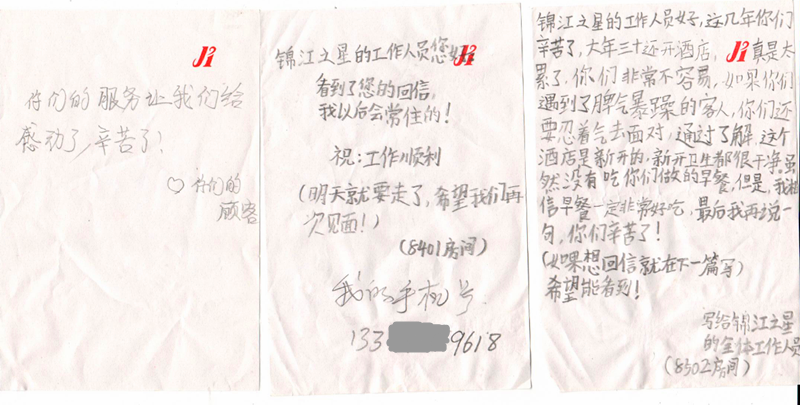 你们的服务让我们给
感动了,辛苦了!
♡ 你们的
顾客
锦江之星的工作人员您好
看到了您的回信,
我以后会常住的!
祝:工作顺利
(明天就要走了,希望我们再
次见面!)
(8401房间)
我的手机号
133 9618
锦江之星的工作人员好,这几年你们
辛苦了,大年三十还开酒店, 真是太
累了,你们非常不容易,如果你们
遇到了脾气暴躁的客人,你们还
要忍着气去面对,通过了解,这个
酒店是新开的,新开卫生都很干净,虽
然没有吃你们做的早餐,但是,我相
信早餐一定非常好吃,最后我再说一
句,你们辛苦了!
(如果想回信就在下一篇写)
希望能看到!
写给锦江之星
的全体工作人员
(8302房间)